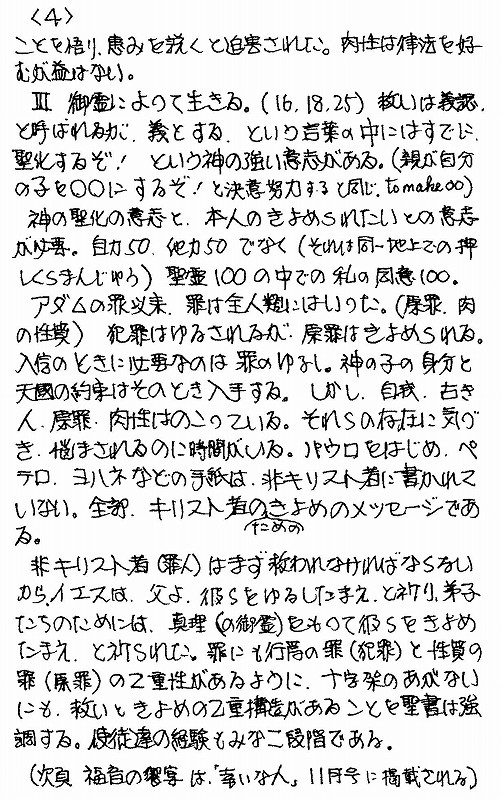 〈4〉
ことを悟り、恵みを説くと迫害された。肉性は律法を好
むが益はない。
Ⅲ 御霊によって生きる。(16,18,25) 救いは義認
と呼ばれるが、義とする、という言葉の中にはすでに、
聖化するぞ! という神の強い意志がある。(親が自分
の子を〇〇にするぞ!と決意努力すると同じ、to make∞)
神の聖化の意志と、本人のきよめられたいとの意志
が必要。自力50、他力50でなく(それは同一地上での押
しくらまんじゅう)聖霊100の中での私の同意100。
アダムの罪以来、罪は全人類にはいった。(原罪、肉
の性質) 犯罪はゆるされるが、原罪はきよめられる。
入信のときに必要なのは罪のゆるし。神の子の身分と
天国の約束はそのとき入手する。しかし、自我、古き
人、原罪、肉性はのこっている。それらの存在に気づ
き、悩まされるのに時間がいる。パウロをはじめ、ペ
テロ、ヨハネなどの手紙は、非キリスト者に書かれて
いない。全部、キリスト者のきよめのメッセージであ
ための
る。
非キリスト者(罪人)はまず救われなければならない
から、イエスは、父よ、彼らをゆるしたまえ、と祈り、弟子
たちのためには、真理(の御霊)をもって彼らをきよめ
たまえ、と祈られた。罪にも行為の罪(犯罪)と性質の
罪(原罪)の2重性があるように、十字架のあがない
にも、救いときよめの2重構造があることを聖書は強
調する。使徒達の経験もみな二段階である。
(次頁 福音の饗宴は、「幸いな人」11月号に掲載される)